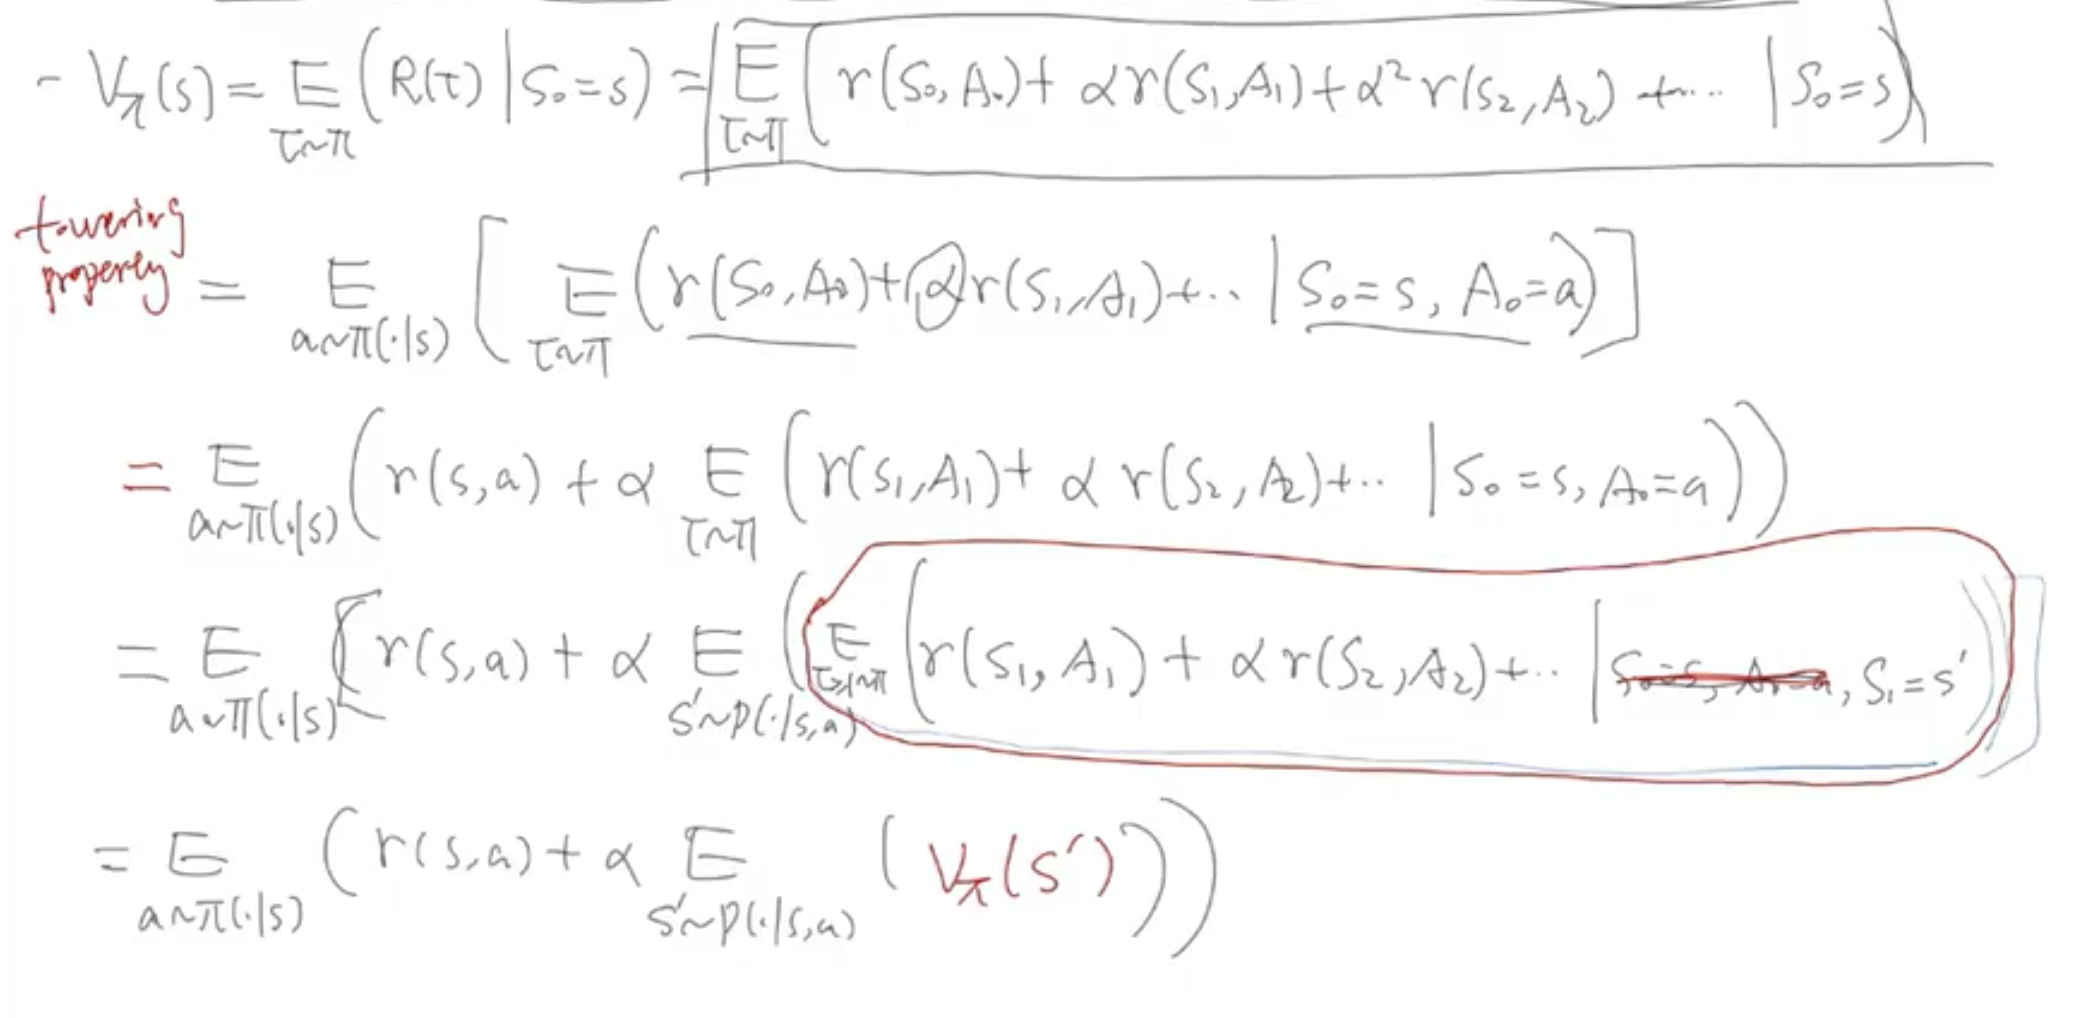 - V_π(s) = E_{τ~π} ( R(τ) | S₀=s ) = E_{τ~π} ( r(S₀, A₀) + αr(S₁,A₁) + α² r(S₂,A₂) + ... | S₀=s )
towering
property
= E_{a~π(·|s)} [ E_{τ~π} ( r(S₀,A₀) + αr(S₁,A₁) + ... | S₀=s, A₀=a ) ]
= E_{a~π(·|s)} ( r(s,a) + α E_{τ~π} ( r(S₁,A₁) + α r(S₂,A₂) + ... | S₀=s, A₀=a ) )
= E_{a~π(·|s)} [ r(s,a) + α E_{s'~p(·|s,a)} ( E_{τ~π} ( r(S₁,A₁) + αr(S₂,A₂) + ... | S₀=s, A₀=a, S₁=s' ) ) ]
= E_{a~π(·|s)} ( r(s,a) + α E_{s'~p(·|s,a)} ( V_π(s') ) )